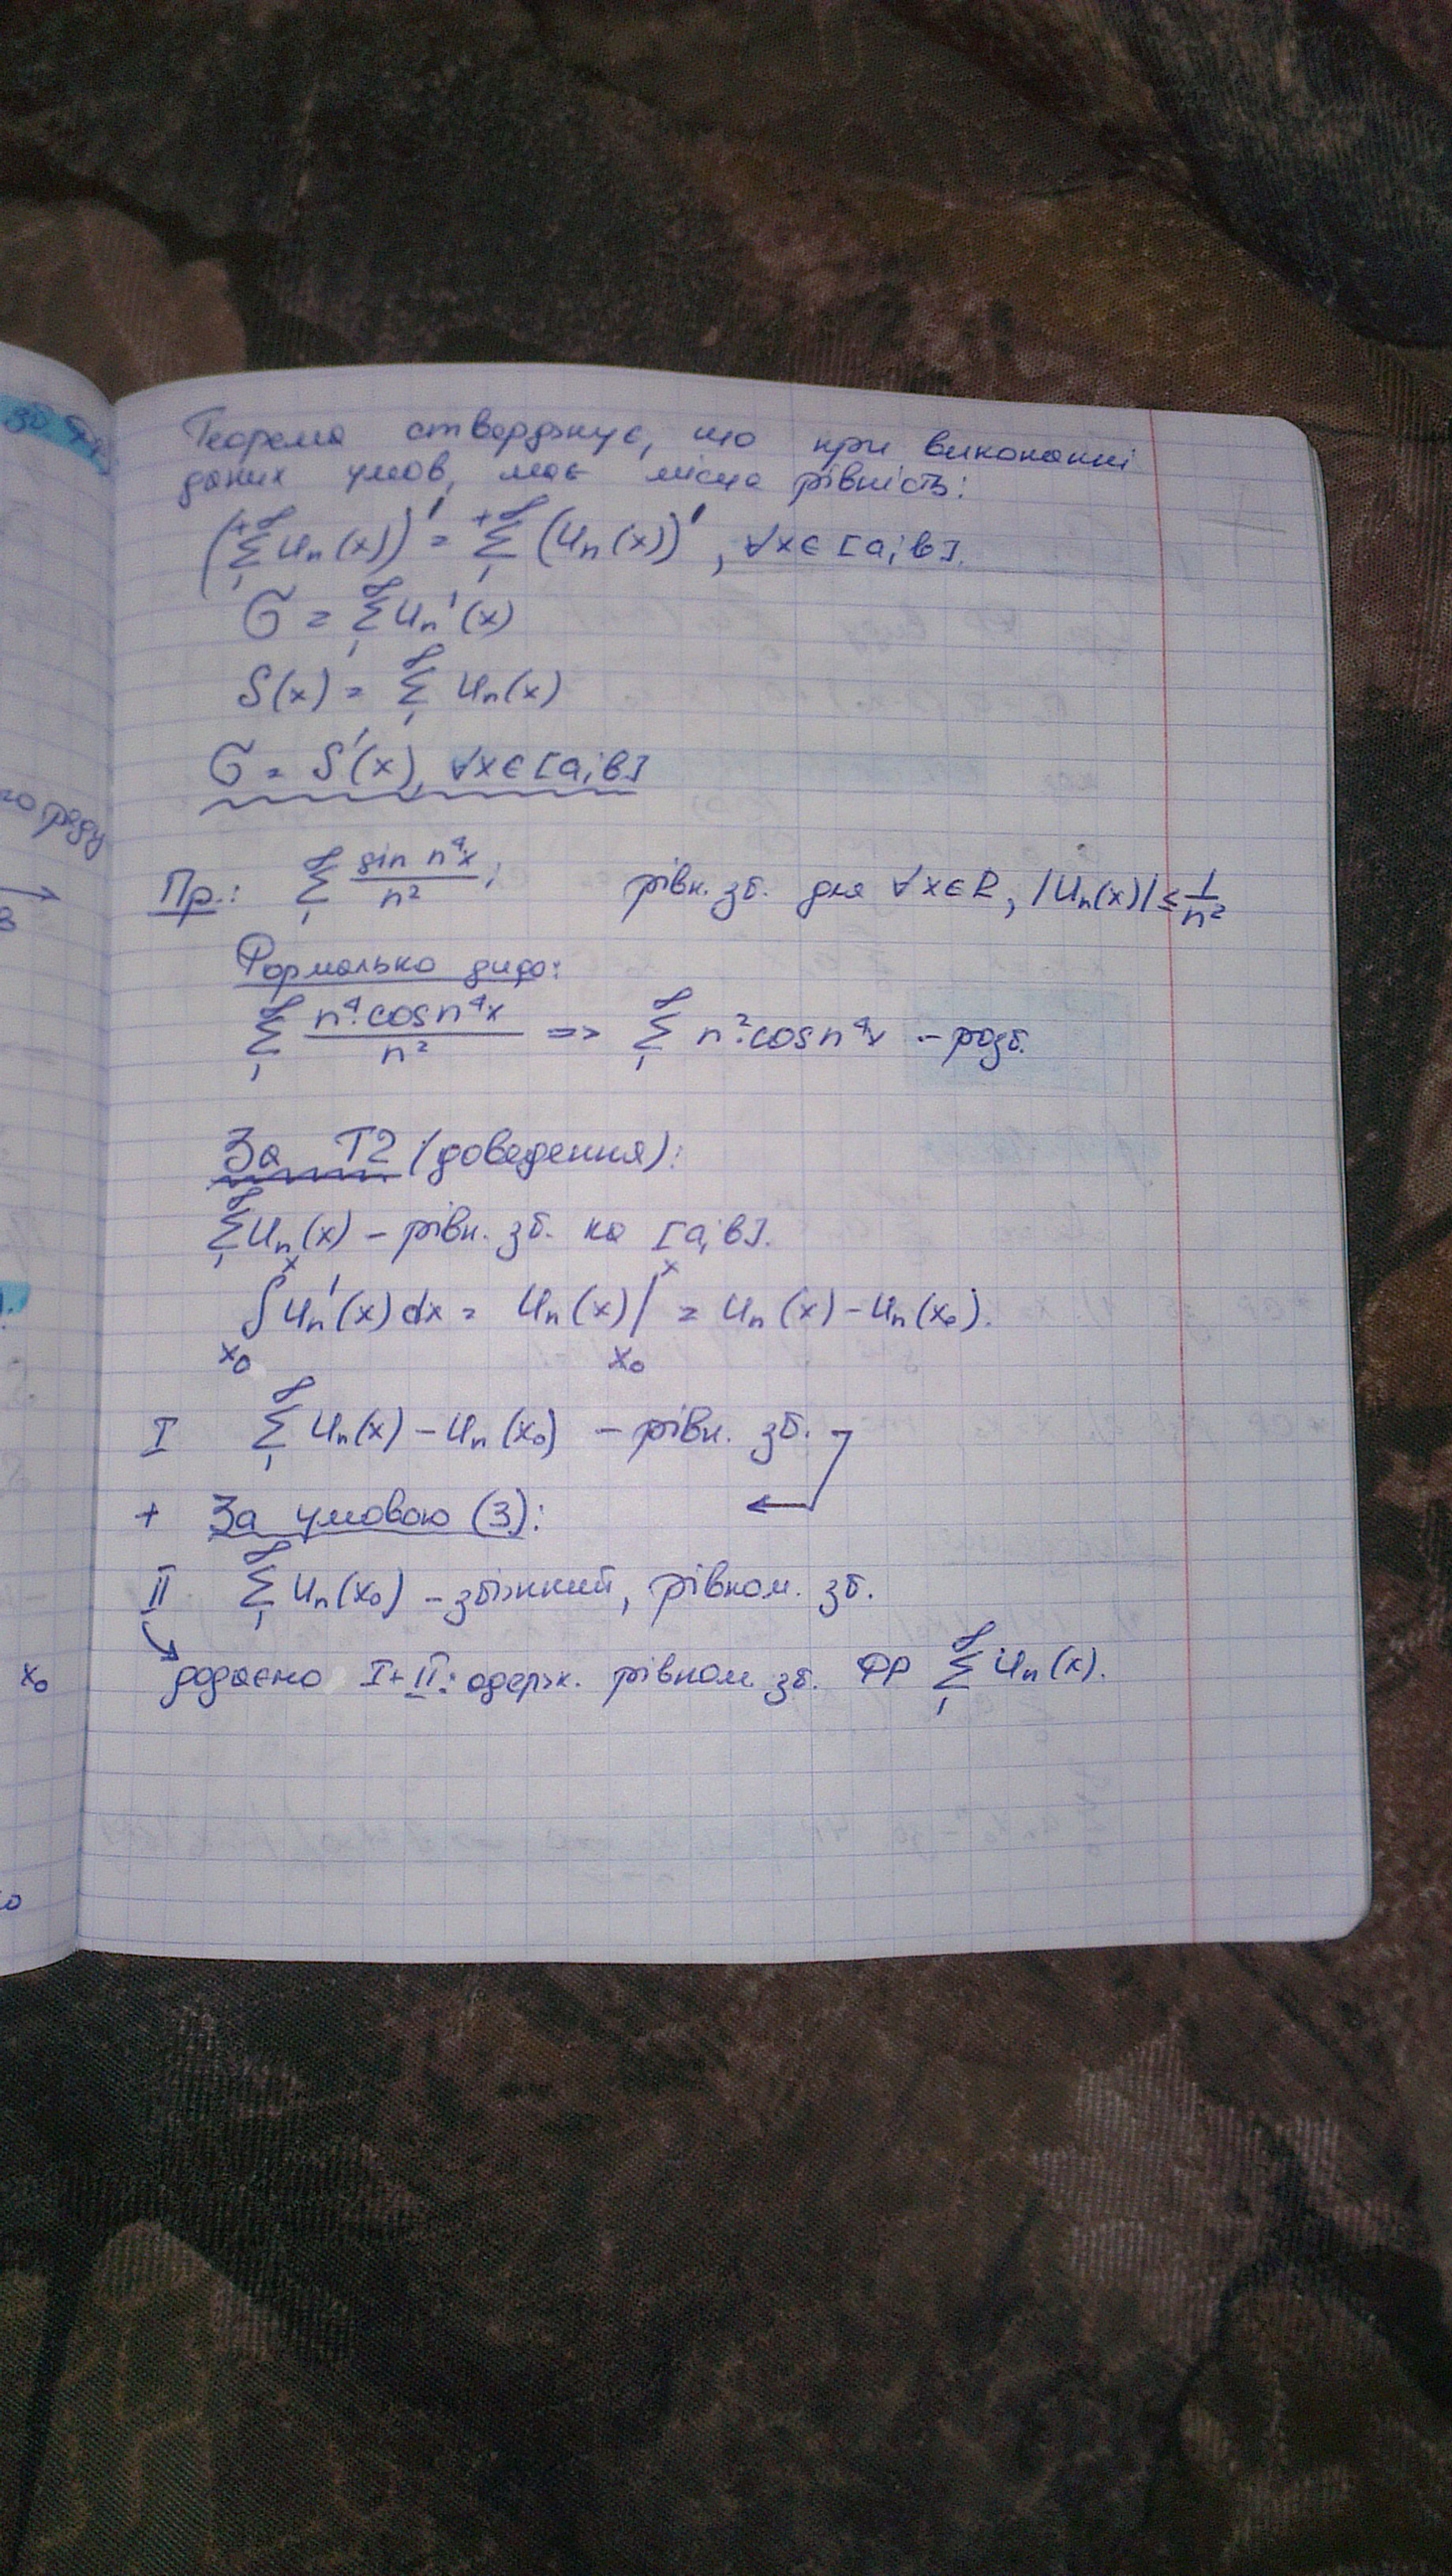 Теорема стверджує, що при виконанні
даних умов, має місце рівність:
(∑₁^{+∞} Uₙ(x))' = ∑₁^{+∞} (Uₙ(x))', ∀x∈[a;b].
σ = ∑₁^∞ Uₙ'(x)
S(x) = ∑₁^∞ Uₙ(x)
σ = S'(x), ∀x∈[a;b]
Пр.: ∑₁^∞ sin n⁴x / n²; рівн. зб. для ∀x∈R, |Uₙ(x)| ≤ 1/n²
Формально диф:
∑₁^∞ n⁴·cos n⁴x / n² => ∑₁^∞ n²·cos n⁴x - розб.
За Т2 (доведення):
∑₁^∞ Uₙ(x) - рівн. зб. на [a;b].
∫_{x₀}^{x} Uₙ'(x)dx = Uₙ(x)|_{x₀}^{x} = Uₙ(x) - Uₙ(x₀).
I ∑₁^∞ Uₙ(x) - Uₙ(x₀) - рівн. зб.
+ За умовою (3):
II ∑₁^∞ Uₙ(x₀) - збіжний, рівном. зб.
додаємо I+II: одерж. рівном. зб. ФР ∑₁^∞ Uₙ(x).
реду
x₀